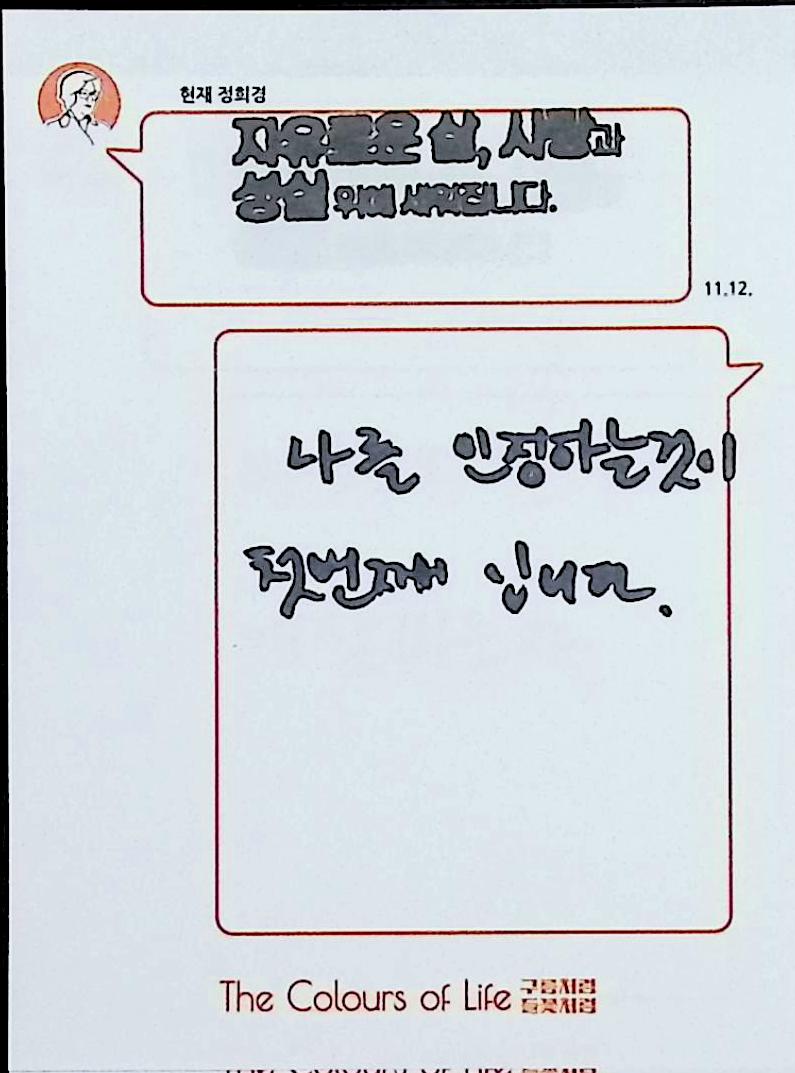 현재 정희경
자유로운 삶, 사랑과
성실 위에 세워집니다.
11.12.
나를 인정하는것이
첫번째 입니다.
The Colours of Life 구름처럼
들꽃처럼